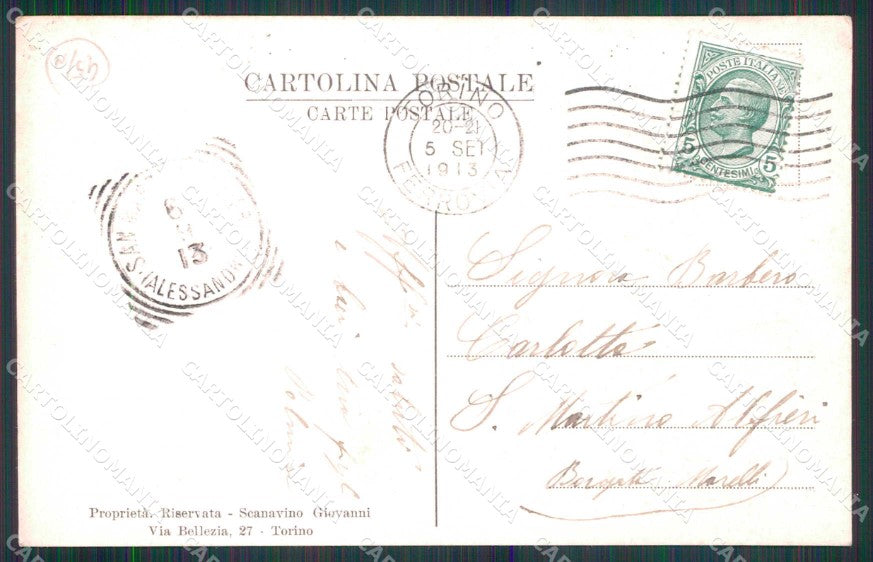 43/a
CARTOLINA POSTALE
CARTE POSTALE
TORINO
20-21
5 SET
1913
FERROVIA
POSTE ITALIANE
5 5
CENTESIMI
13
SAN (ALESSANDRIA)
saluti
e baci
Signora Barbero
Carlotta
S. Martino Alfieri
Borgata Morelli
Proprietà Riservata - Scanavino Giovanni
Via Bellezia, 27 - Torino
CARTOLINOMANIA